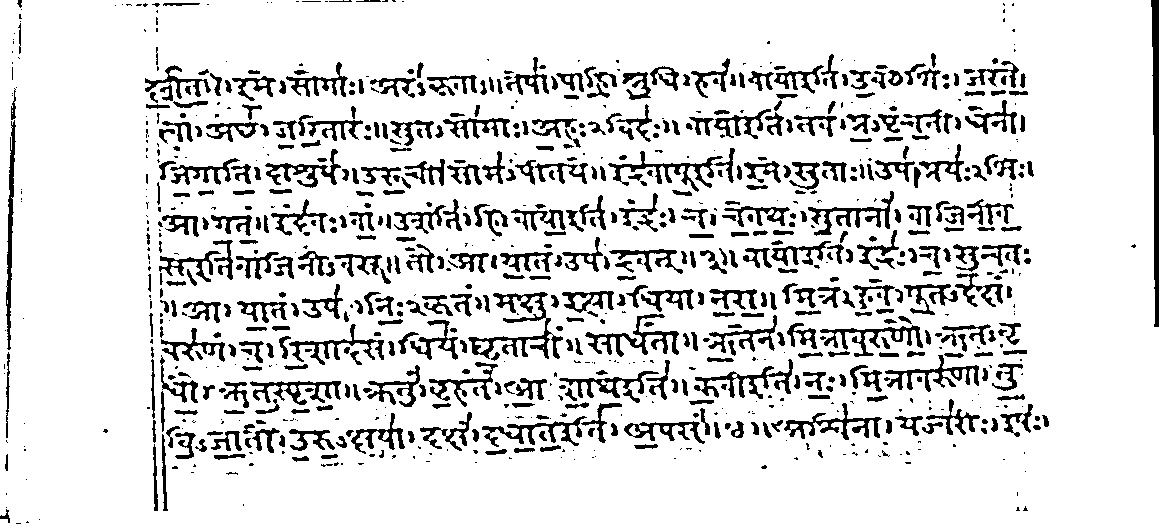 दर्शत । इमे । सोमाः । अरंऽकृताः ॥ तेषां । पाहि । श्रुधि । हवं ॥ वायो इति । उक्थेभिः । जरंते ।
त्वां । अच्छ । जरितारः ॥ सुतऽसोमाः । अहःऽविदः ॥ वायो इति । तव । प्रऽपृंचती । धेना ।
जिगाति । दाशुषे ॥ उरूची । सोमऽपीतये ॥ इंद्रवायू इति । इमे । सुताः ॥ उप । प्रयःऽभिः ।
आ । गतं ॥ इंदवः । वां । उशंति । हि । वायो इति । इंद्रः । च । चेतथः । सुतानां । वाजिनीव
सू इति वाजिनीऽवसू ॥ तौ । आ । यातं । उप । द्रवत् ॥ ३ ॥ वायो इति । इंद्रः । च । सुन्वतः
॥ आ । यातं । उप । निःऽकृतं ॥ मक्षु । इत्था । धिया । नरा ॥ मित्रं । हुवे । पूतऽदक्षं
वरुणं । च । रिशादसं । धियं । घृताचीं । साधंता ॥ ऋतेन । मित्रावरुणौ । ऋतऽवृ
धौ । ऋतऽस्पृशा ॥ क्रतुं । बृहंतं । आशाथे इति ॥ कवी इति । नः । मित्रावरुणा । तु
विऽजातौ । उरुऽक्षया । दक्षं । दधाते इति । अपसं ॥ ४ ॥ अश्विना । यज्वरीः । इषः ।